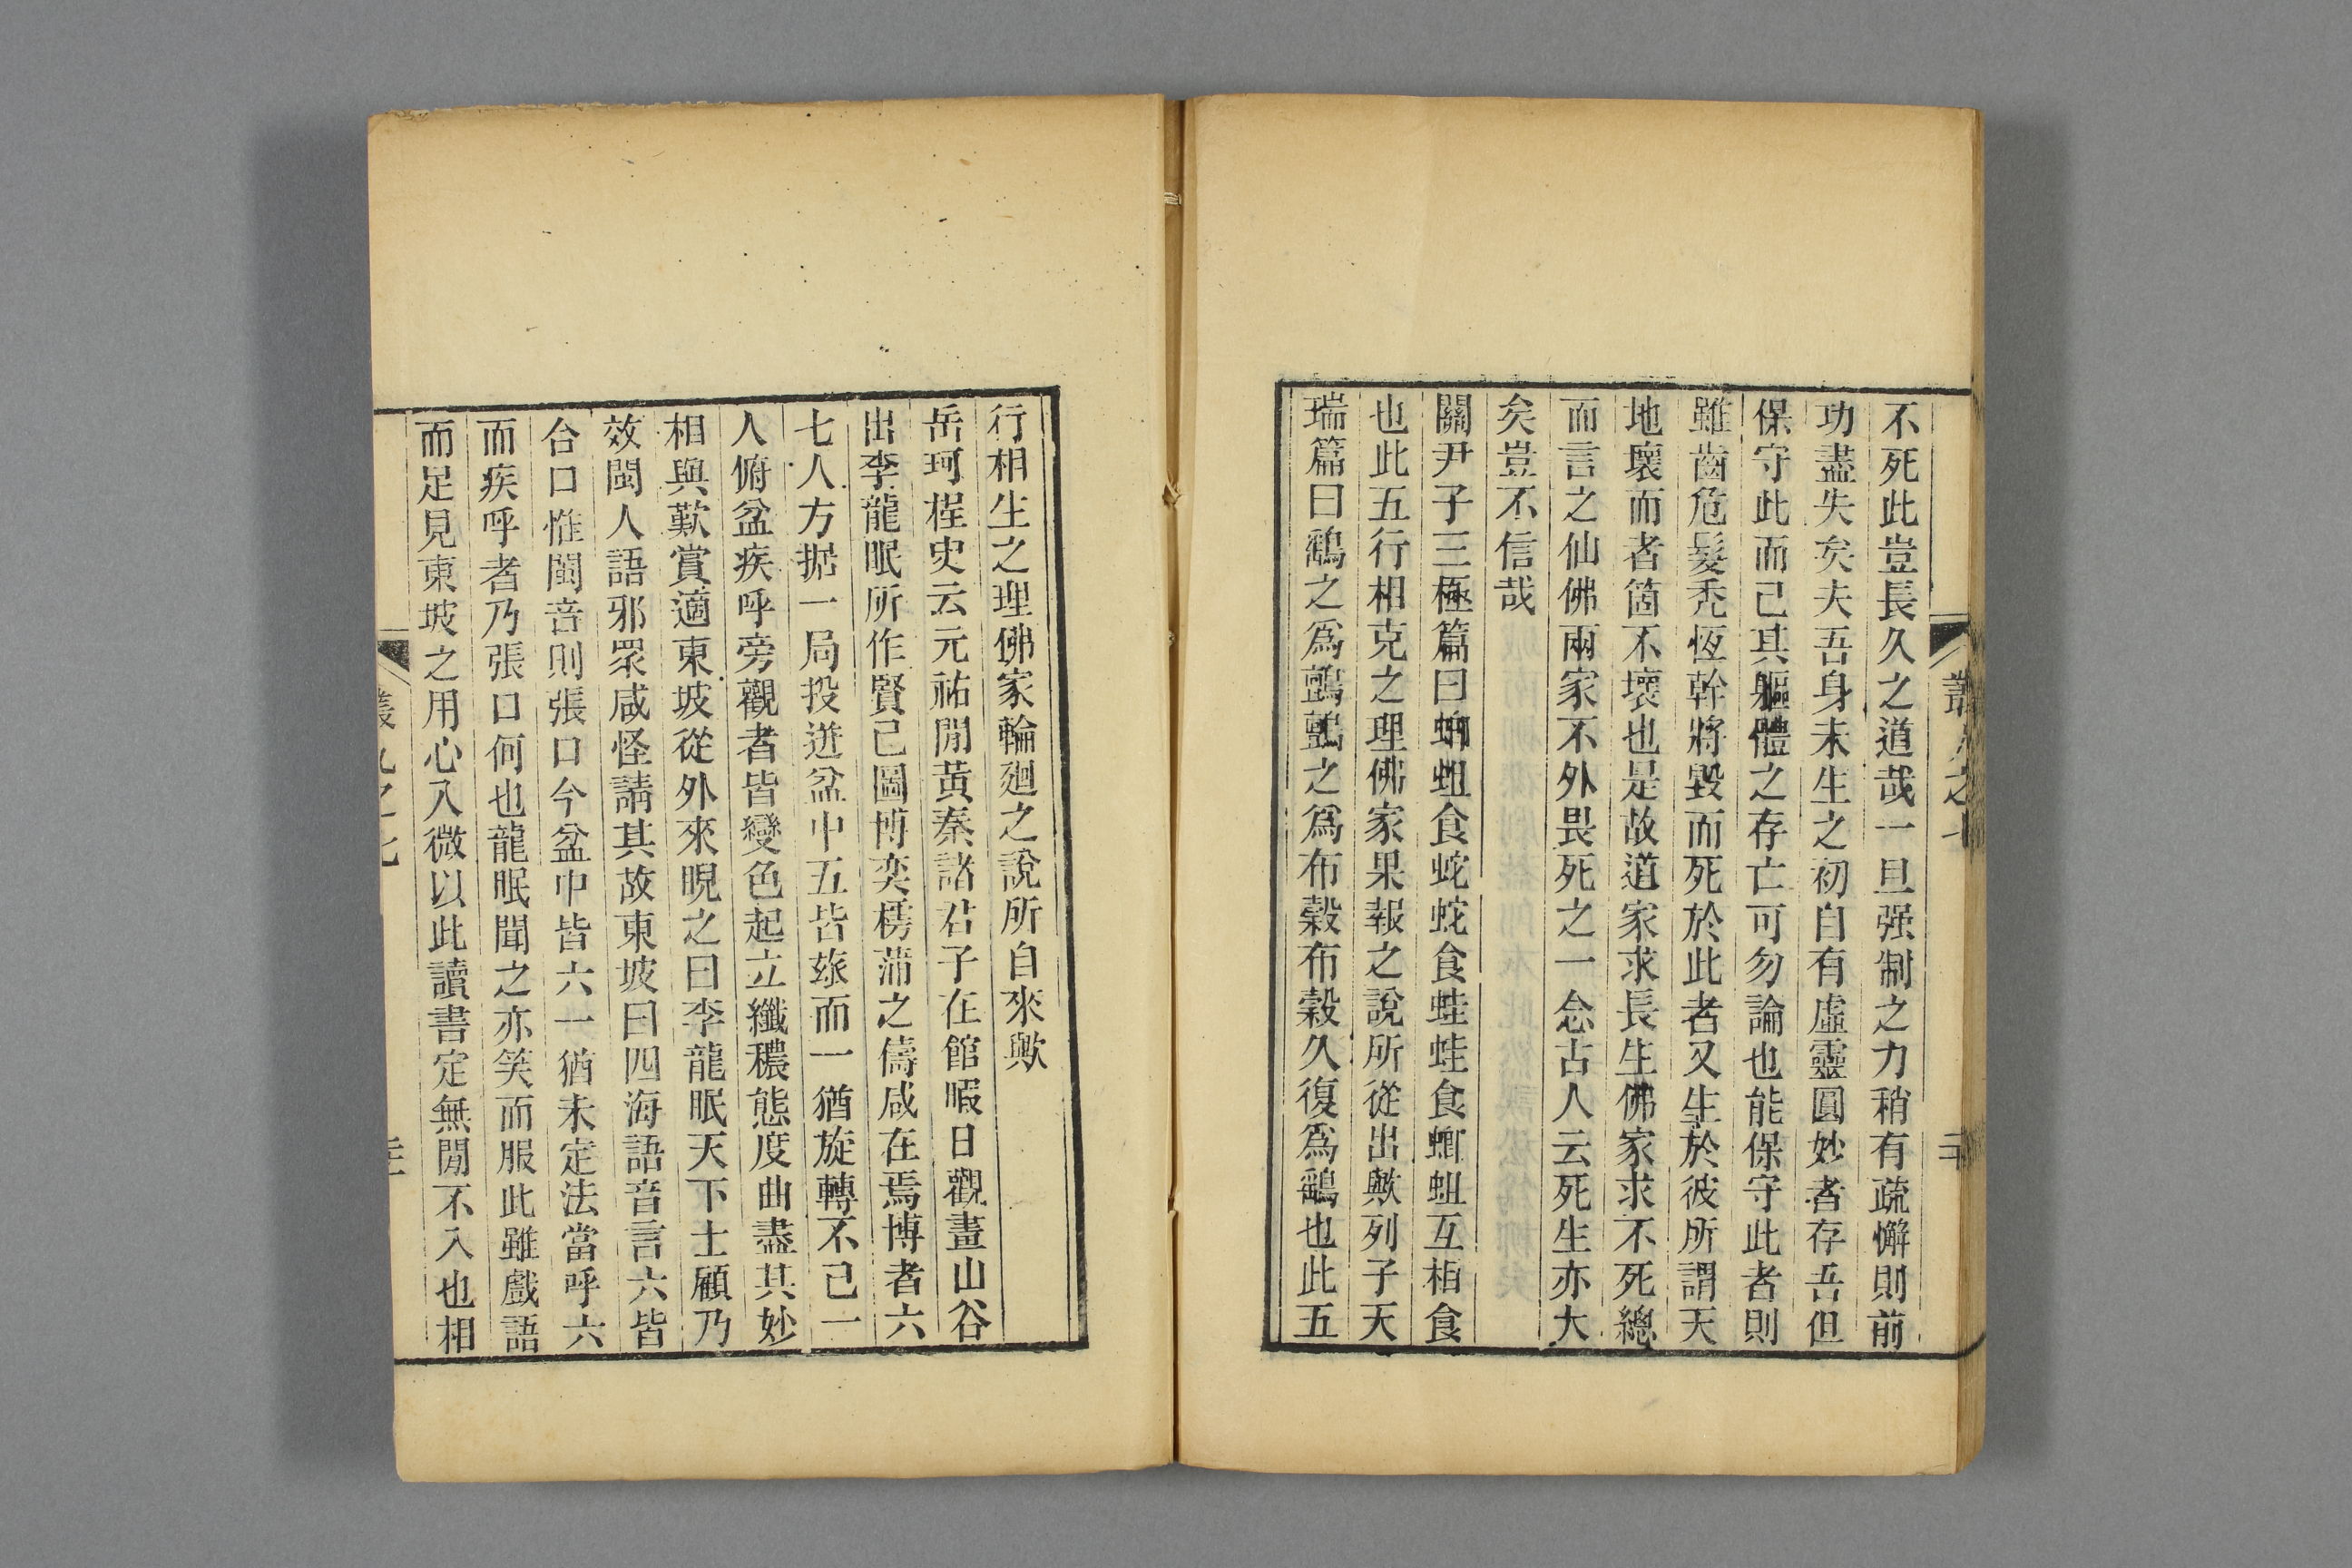 不死此豈長久之道哉一旦强制之力稍有疏懈則前
功盡失矣夫吾身未生之初自有虛靈圓妙者存吾但
保守此而已其軀體之存亡可勿論也能保守此者則
雖齒危髮禿恆幹將毀而死於此者又生於彼所謂天
地壞而者箇不壞也是故道家求長生佛家求不死總
而言之仙佛兩家不外畏死之一念古人云死生亦大
矣豈不信哉
關尹子三極篇曰蝍蛆食蛇蛇食蛙蛙食蝍蛆互相食
也此五行相克之理佛家果報之說所從出歟列子天
瑞篇曰鷂之爲鸇鸇之爲布穀布穀久復爲鷂也此五
行相生之理佛家輪廻之說所自來歟
岳珂桯史云元祐間黃秦諸君子在館暇日觀畫山谷
出李龍眠所作賢已圖博奕樗蒲之儔咸在焉博者六
七人方据一局投迸盆中五皆玈而一猶旋轉不已一
人俯盆疾呼旁觀者皆變色起立纖穠態度曲盡其妙
相與歎賞適東坡從外來睨之曰李龍眠天下士顧乃
效閩人語邪眾咸怪請其故東坡曰四海語音言六皆
合口惟閩音則張口今盆中皆六一猶未定法當呼六
而疾呼者乃張口何也龍眠聞之亦笑而服此雖戲語
而足見東坡之用心入微以此讀書定無間不入也相